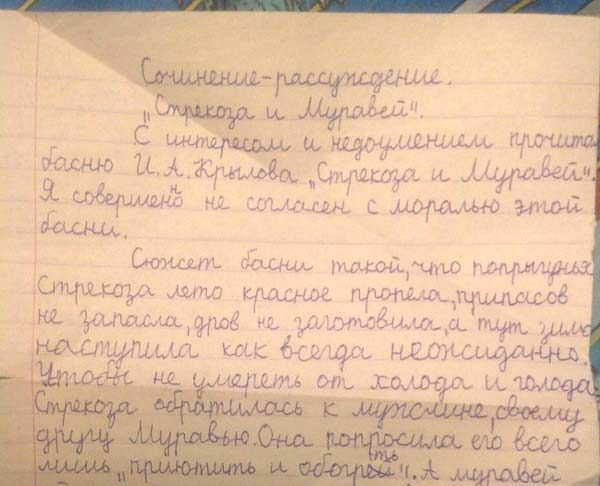 Сочинение-рассуждение.
„Стрекоза и Муравей".
С интересом и недоумением прочита
басню И.А.Крылова „Стрекоза и Муравей".
Я совершенно не согласен с моралью этой
басни.
Сюжет басни такой, что попрыгунья
Стрекоза лето красное пропела, припасов
не запасла, дров не заготовила, а тут зима
наступила как всегда неожиданно.
Чтобы не умереть от холода и голода
Стрекоза обратилась к мужчине, своему
другу Муравью. Она попросила его всего
лишь „приютить и обогреть". А муравей